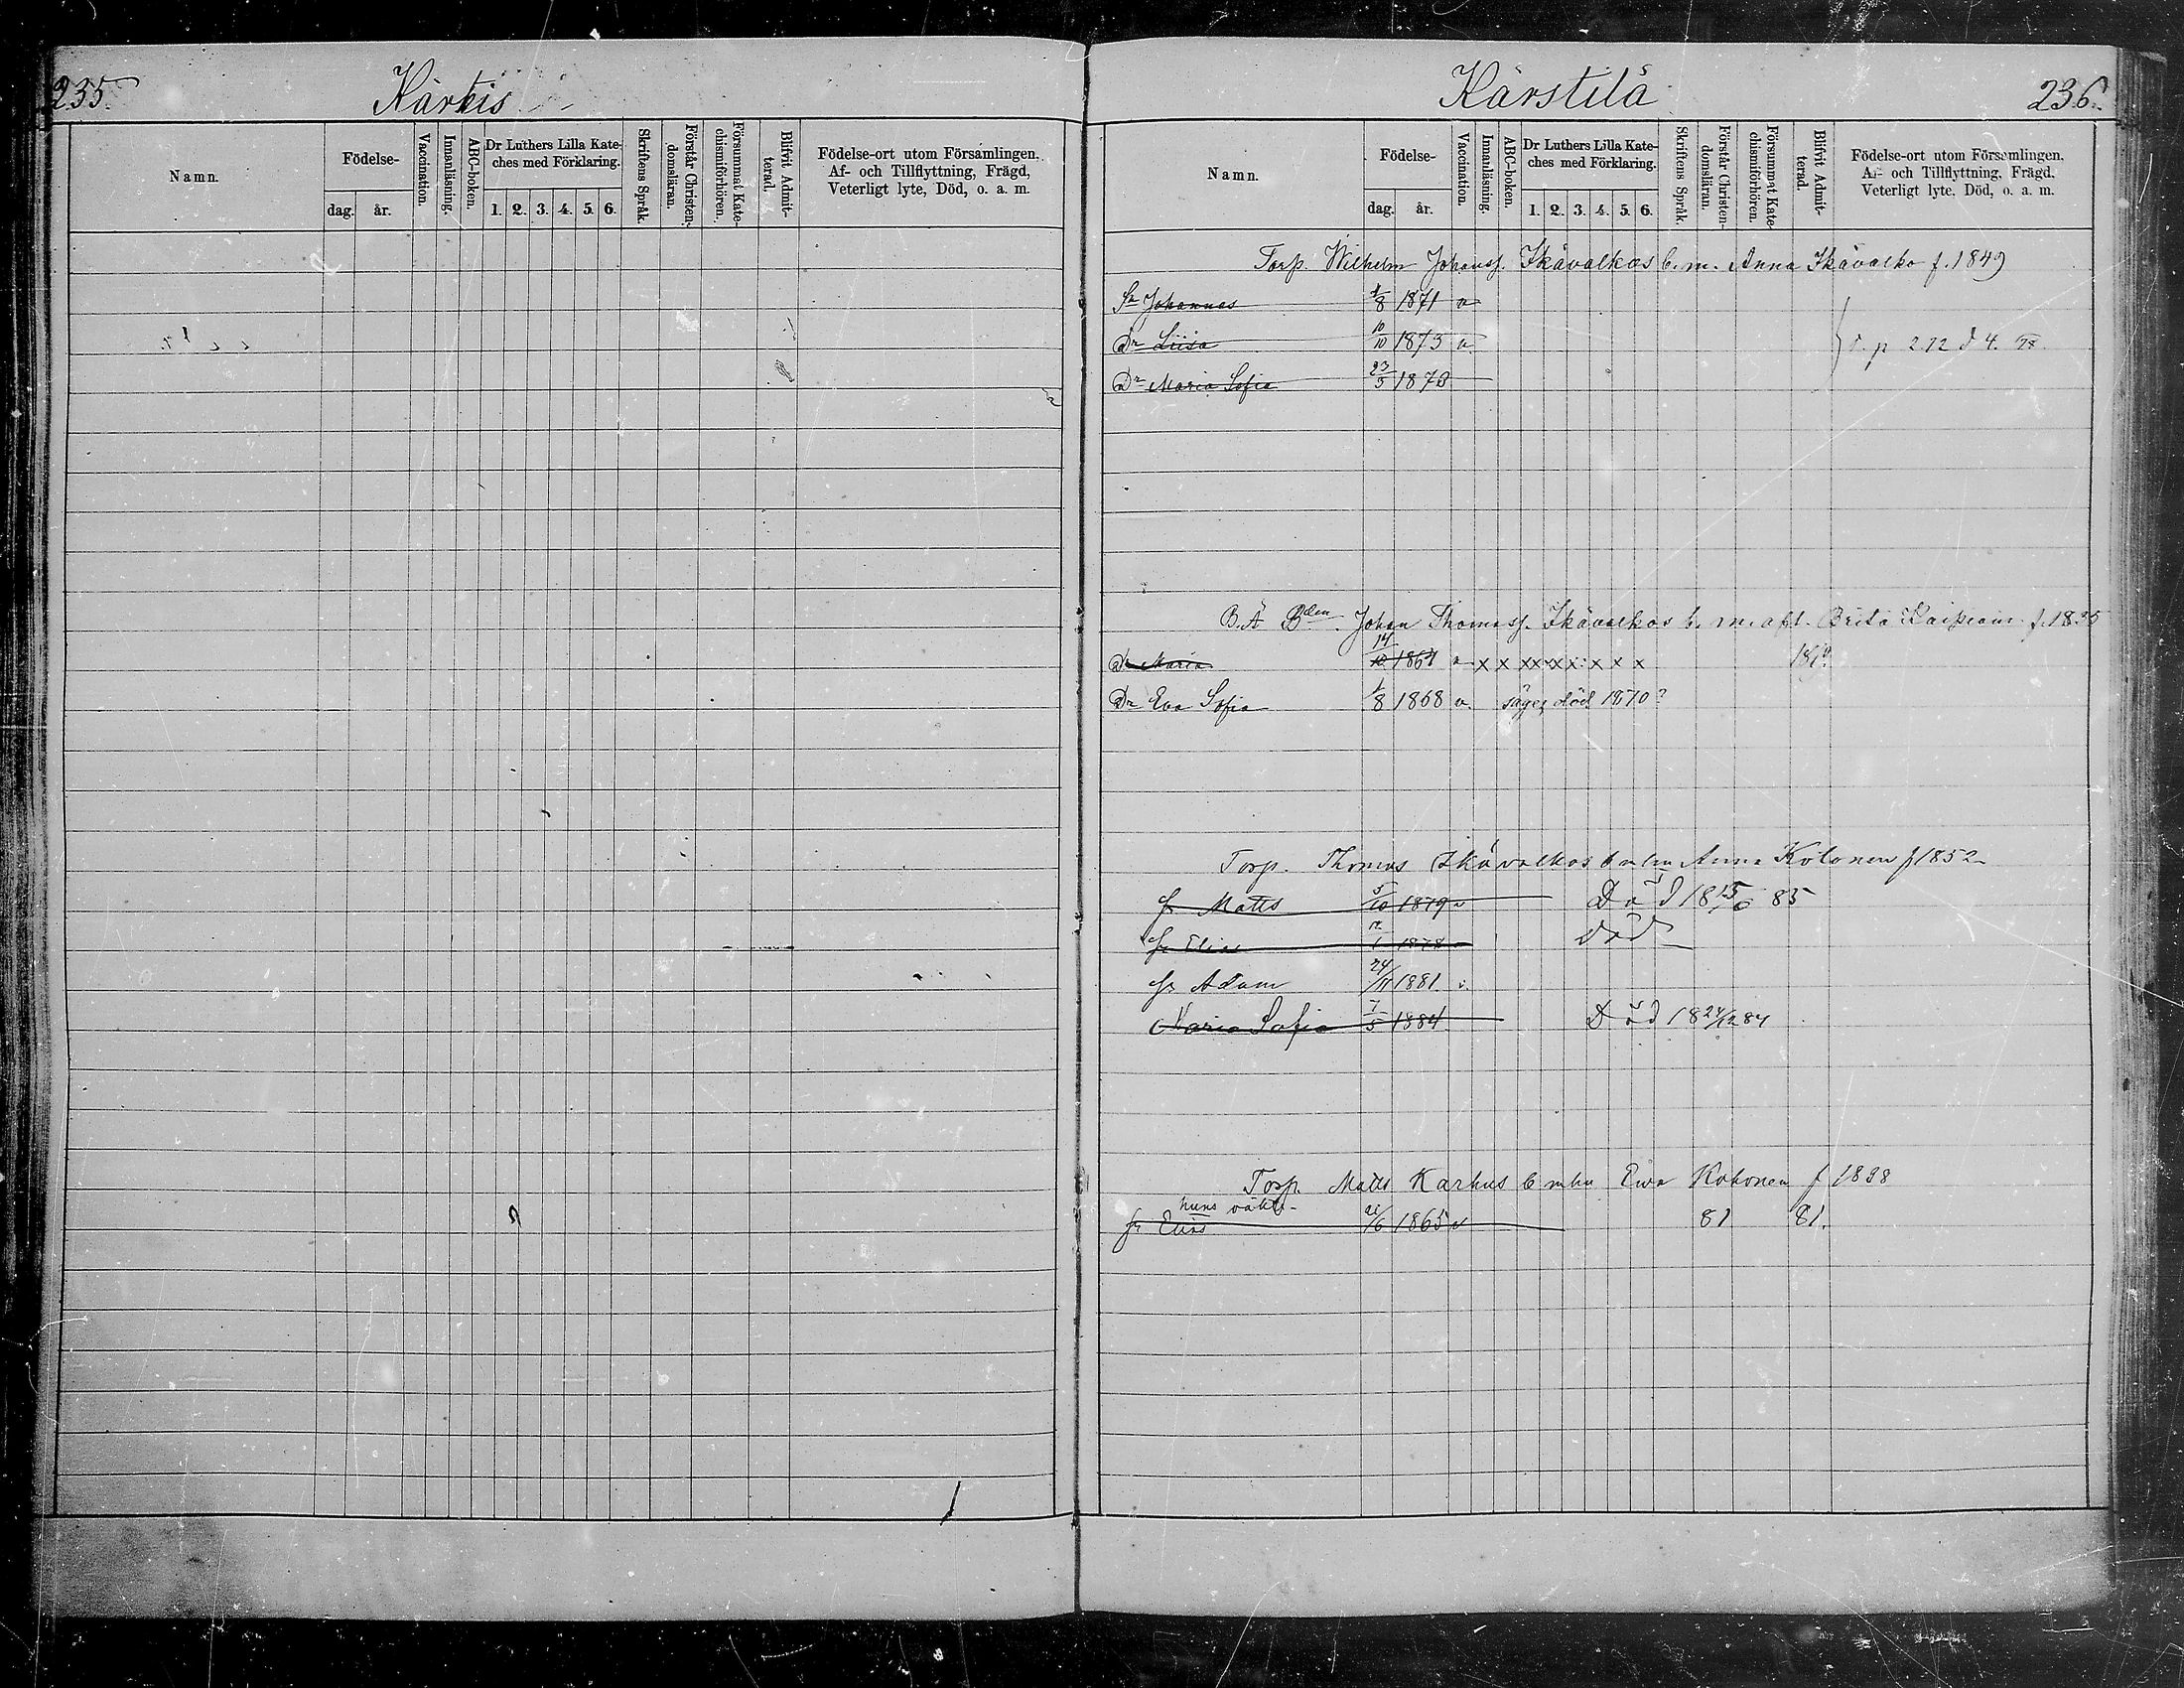 235.
Kärtis
Namn.
Födelse-
dag.
år.
Vaccination.
Innanläsning.
ABC-boken.
Dr Luthers Lilla Kate-
ches med Förklaring.
1. 2. 3. 4. 5. 6.
Skriftens Språk.
Förstår Christen-
domsläran.
Försummat Kate-
chismiförhören.
Blifvit Admit-
terad.
Födelse-ort utom Församlingen,
Af- och Tillflyttning, Frägd,
Veterligt lyte, Död, o. a. m.
Kärstilä
236.
Namn.
Födelse-
dag.
år.
Vaccination.
Innanläsning.
ABC-boken.
Dr Luthers Lilla Kate-
ches med Förklaring.
1. 2. 3. 4. 5. 6.
Skriftens Språk.
Förstår Christen-
domsläran.
Försummat Kate-
chismiförhören.
Blifvit Admit-
terad.
Födelse-ort utom Församlingen,
Af- och Tillflyttning, Frägd,
Veterligt lyte, Död, o. a. m.
Torp. Wilhelm Johanss. Ikävalkos b. m. Anna Ikävalko f. 1849
Sr Johannes 1/8 1871 v
Dr Liisa 10/10 1873 v p 212 d 4.
Dr Maria Sofia 23/5 1878
B. Ä Bden Johan Thomass. Ikävalkos b. m. afl. Brita f. 1835
Dr Maria 14/10 1864 v x x x x x x x x x
Dr Eva Sofia 1/8 1868 v. säges död 1870?
Torp. Thomas Ikävalkos b m hu Anna Kotonen f 1852
Sr Matts 5/10 1879 v Död 18 15/6 85
Sr Elias 1878 Död
Sr Adam 24/11 1881 v.
Maria Sofia 7/5 1884 Död 18 24/12 84
Torp. Matts Karhus b m hu Ewa Kokonen f 1838
hans
Sr Elias 21/6 1865 v 81 81.